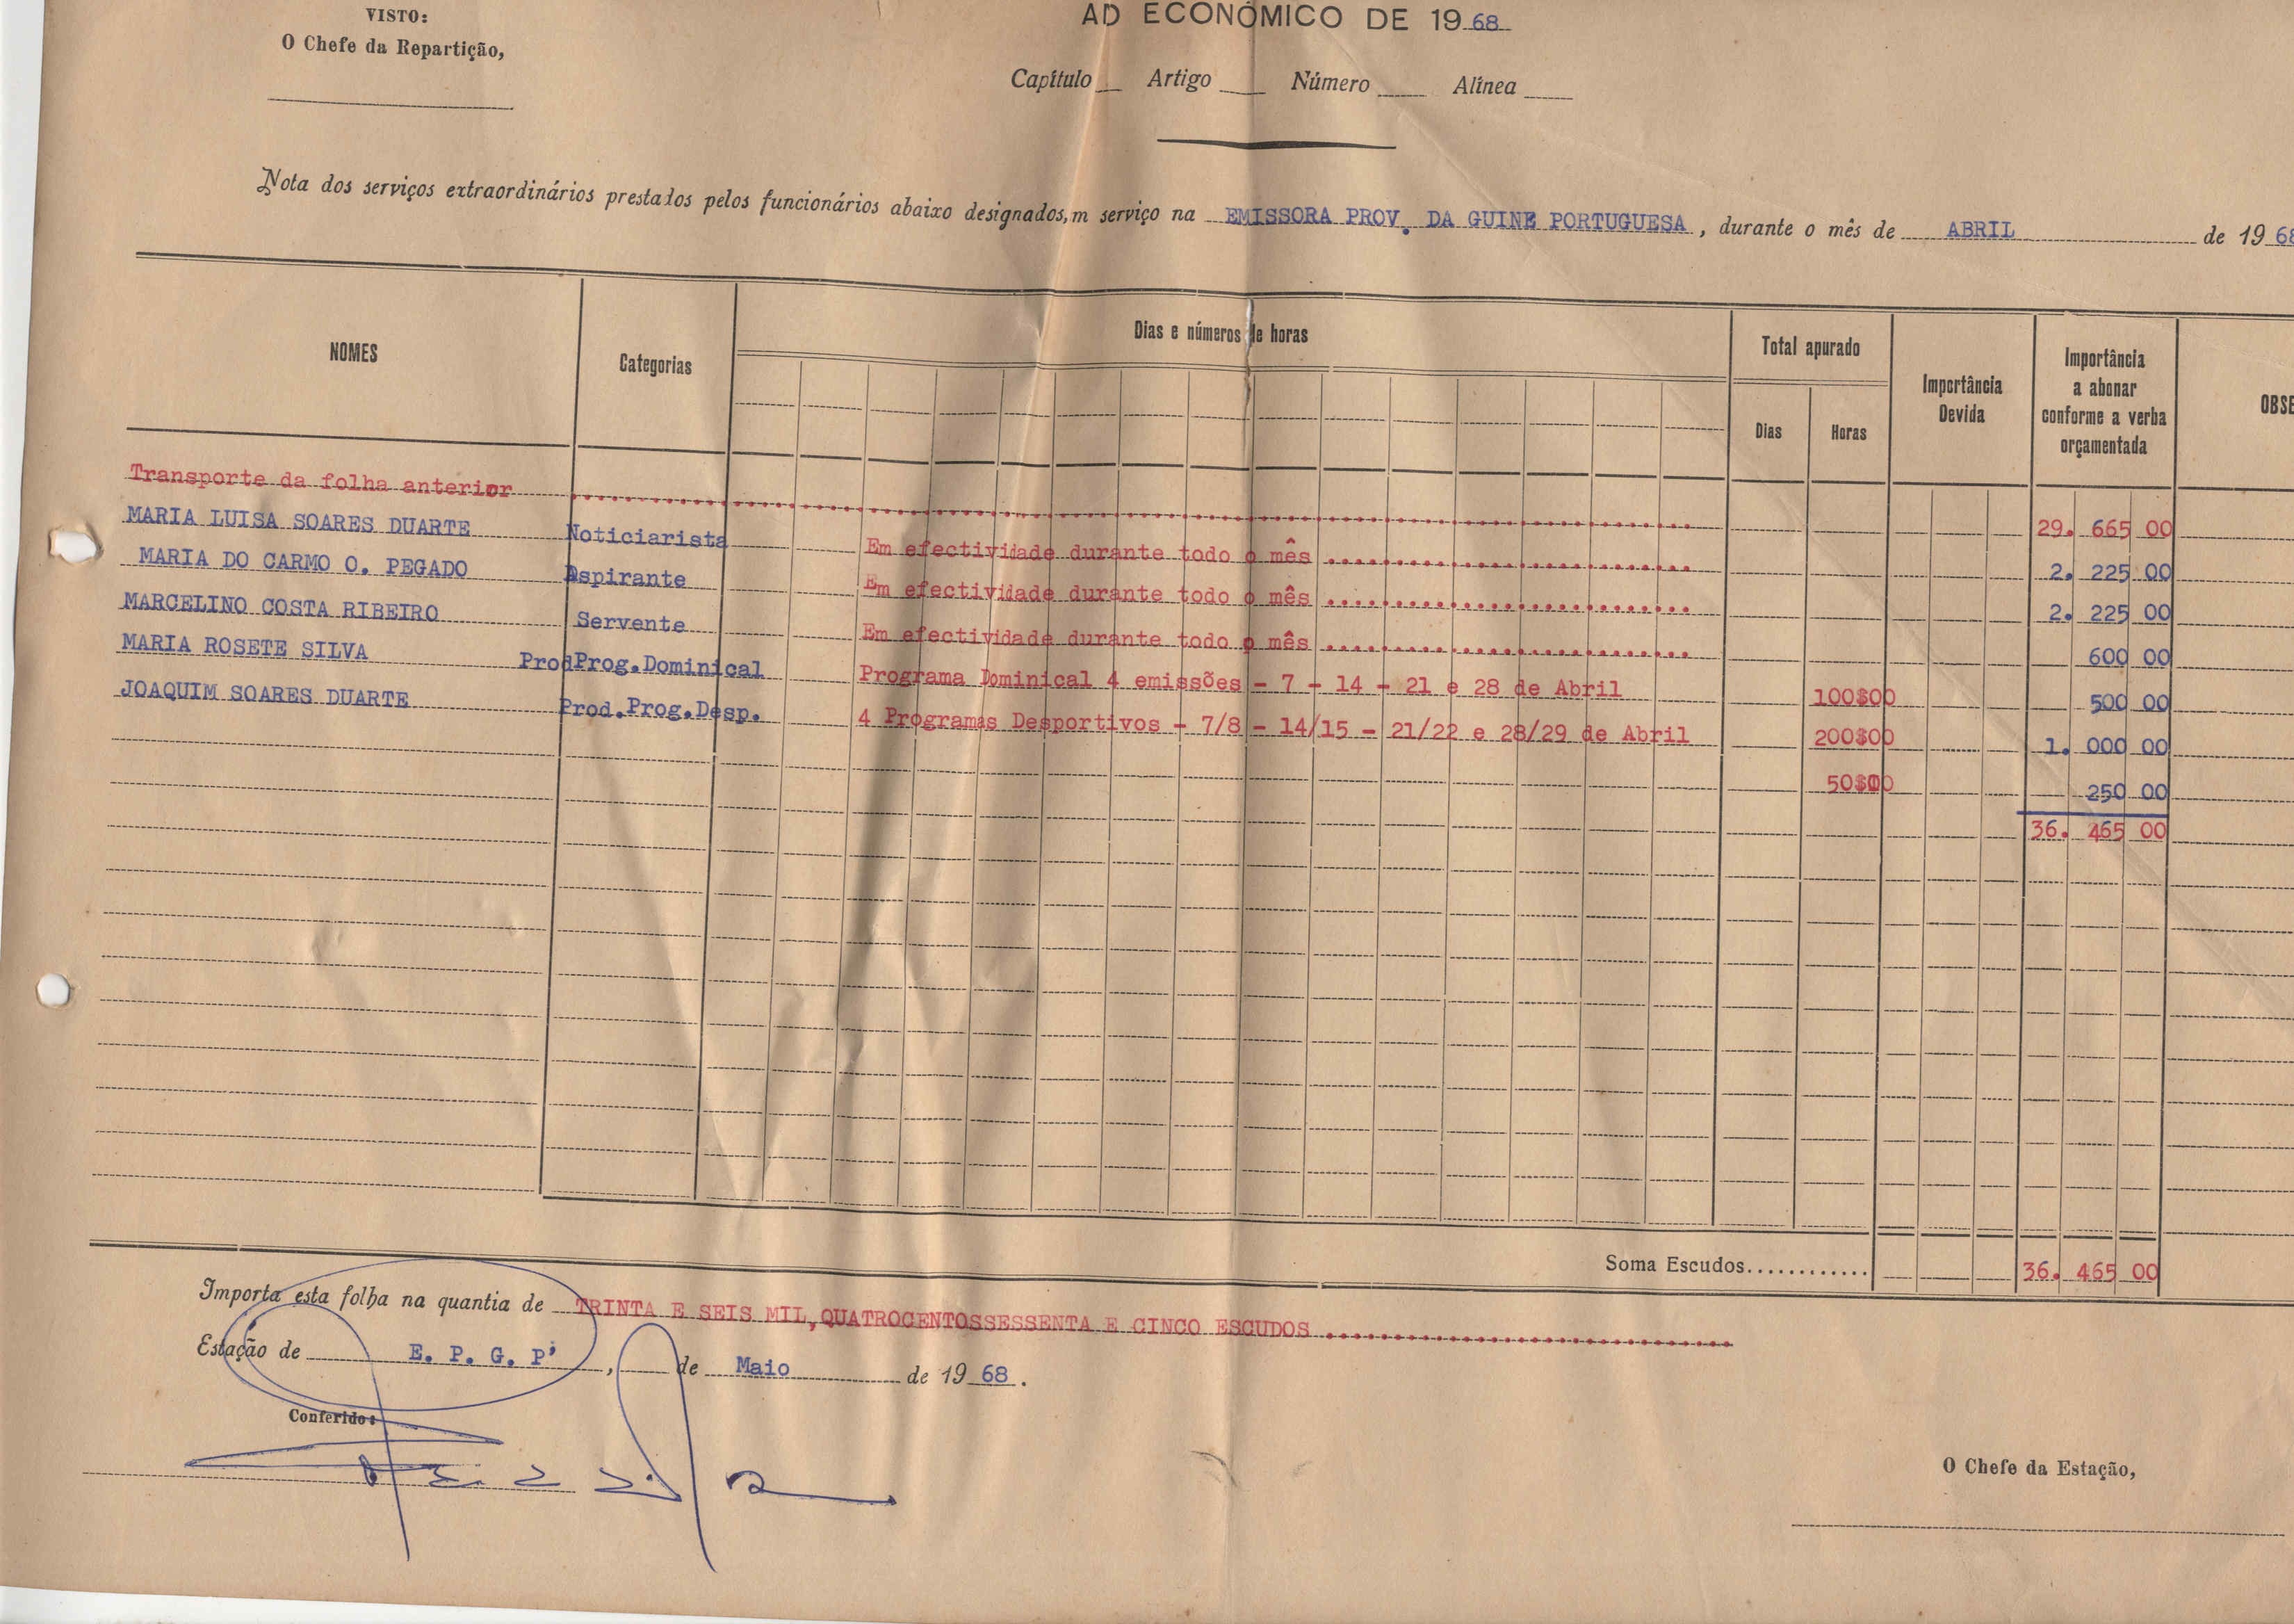 VISTO:
O Chefe da Repartição,
AD ECONÓMICO DE 1968
Capítulo Artigo Número Alínea
Nota dos serviços extraordinários prestados pelos funcionários abaixo designados, m serviço na EMISSORA PROV. DA GUINE PORTUGUESA, durante o mês de ABRIL de 1968
NOMES Categorias Dias e números de horas Total apurado Importância Devida Importância a abonar conforme a verba orçamentada OBSE
Dias Horas
Transporte da folha anterior 29. 665 00
MARIA LUISA SOARES DUARTE Noticiarista Em efectividade durante todo o mês 2. 225 00
MARIA DO CARMO O. PEGADO Aspirante Em efectividade durante todo o mês 2. 225 00
MARCELINO COSTA RIBEIRO Servente Em efectividade durante todo o mês 600 00
MARIA ROSETE SILVA ProdProg.Dominical Programa Dominical 4 emissões - 7 - 14 - 21 e 28 de Abril 100$00 500 00
JOAQUIM SOARES DUARTE Prod.Prog.Desp. 4 Programas Desportivos - 7/8 - 14/15 - 21/22 e 28/29 de Abril 200$00 1. 000 00
50$00 250 00
36. 465 00
Soma Escudos............ 36. 465 00
Importa esta folha na quantia de TRINTA E SEIS MIL, QUATROCENTOSSESSENTA E CINCO ESCUDOS
Estação de E. P. G. P' , de Maio de 1968.
Conferido:
O Chefe da Estação,